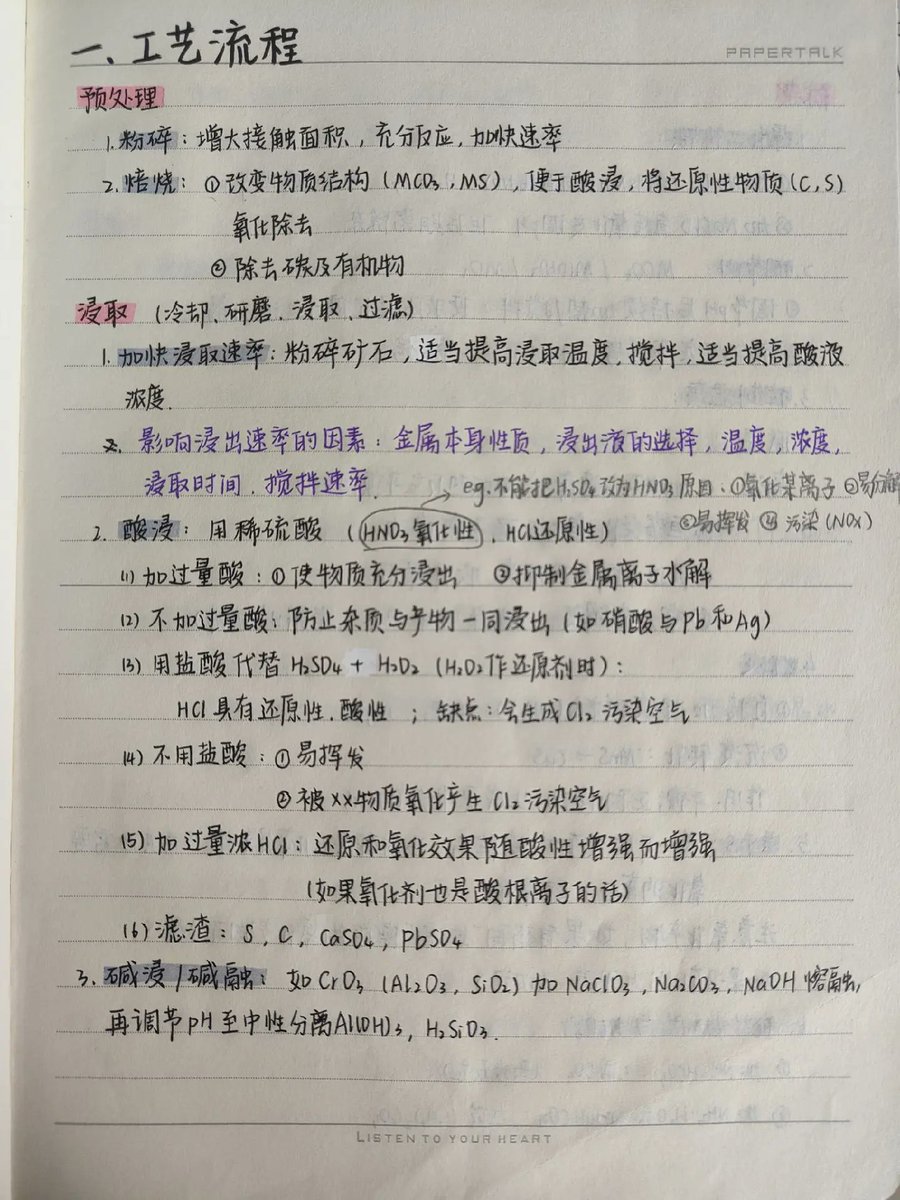 一、工艺流程
PAPERTALK
预处理
1. 粉碎：增大接触面积，充分反应，加快速率
2. 焙烧：①改变物质结构（MCO3，MS），便于酸浸，将还原性物质（C，S）
氧化除去
②除去碳及有机物
浸取（冷却、研磨、浸取、过滤）
1. 加快浸取速率：粉碎矿石，适当提高浸取温度，搅拌，适当提高酸液
浓度.
影响浸出速率的因素：金属本身性质，浸出液的选择，温度，浓度，
浸取时间，搅拌速率.
eg. 不能把H2SO4改为HNO3原因：①氧化某离子 ②易分解
③易挥发 ④污染（NOx）
2. 酸浸：用稀硫酸（HNO3氧化性，HCl还原性）
(1) 加过量酸：①使物质充分浸出 ②抑制金属离子水解
(2) 不加过量酸：防止杂质与产物一同浸出（如硝酸与Pb和Ag）
(3) 用盐酸代替H2SO4 + H2O2（H2O2作还原剂时）：
HCl具有还原性、酸性；缺点：会生成Cl2污染空气
(4) 不用盐酸：①易挥发
②被××物质氧化产生Cl2污染空气
(5) 加过量浓HCl：还原和氧化效果随酸性增强而增强
（如果氧化剂也是酸根离子的话）
(6) 滤渣：S，C，CaSO4，PbSO4
3. 碱浸/碱融：如CrO3（Al2O3，SiO2）加NaClO3，Na2CO3，NaOH熔融，
再调节pH至中性分离Al(OH)3，H2SiO3.
LISTEN TO YOUR HEART